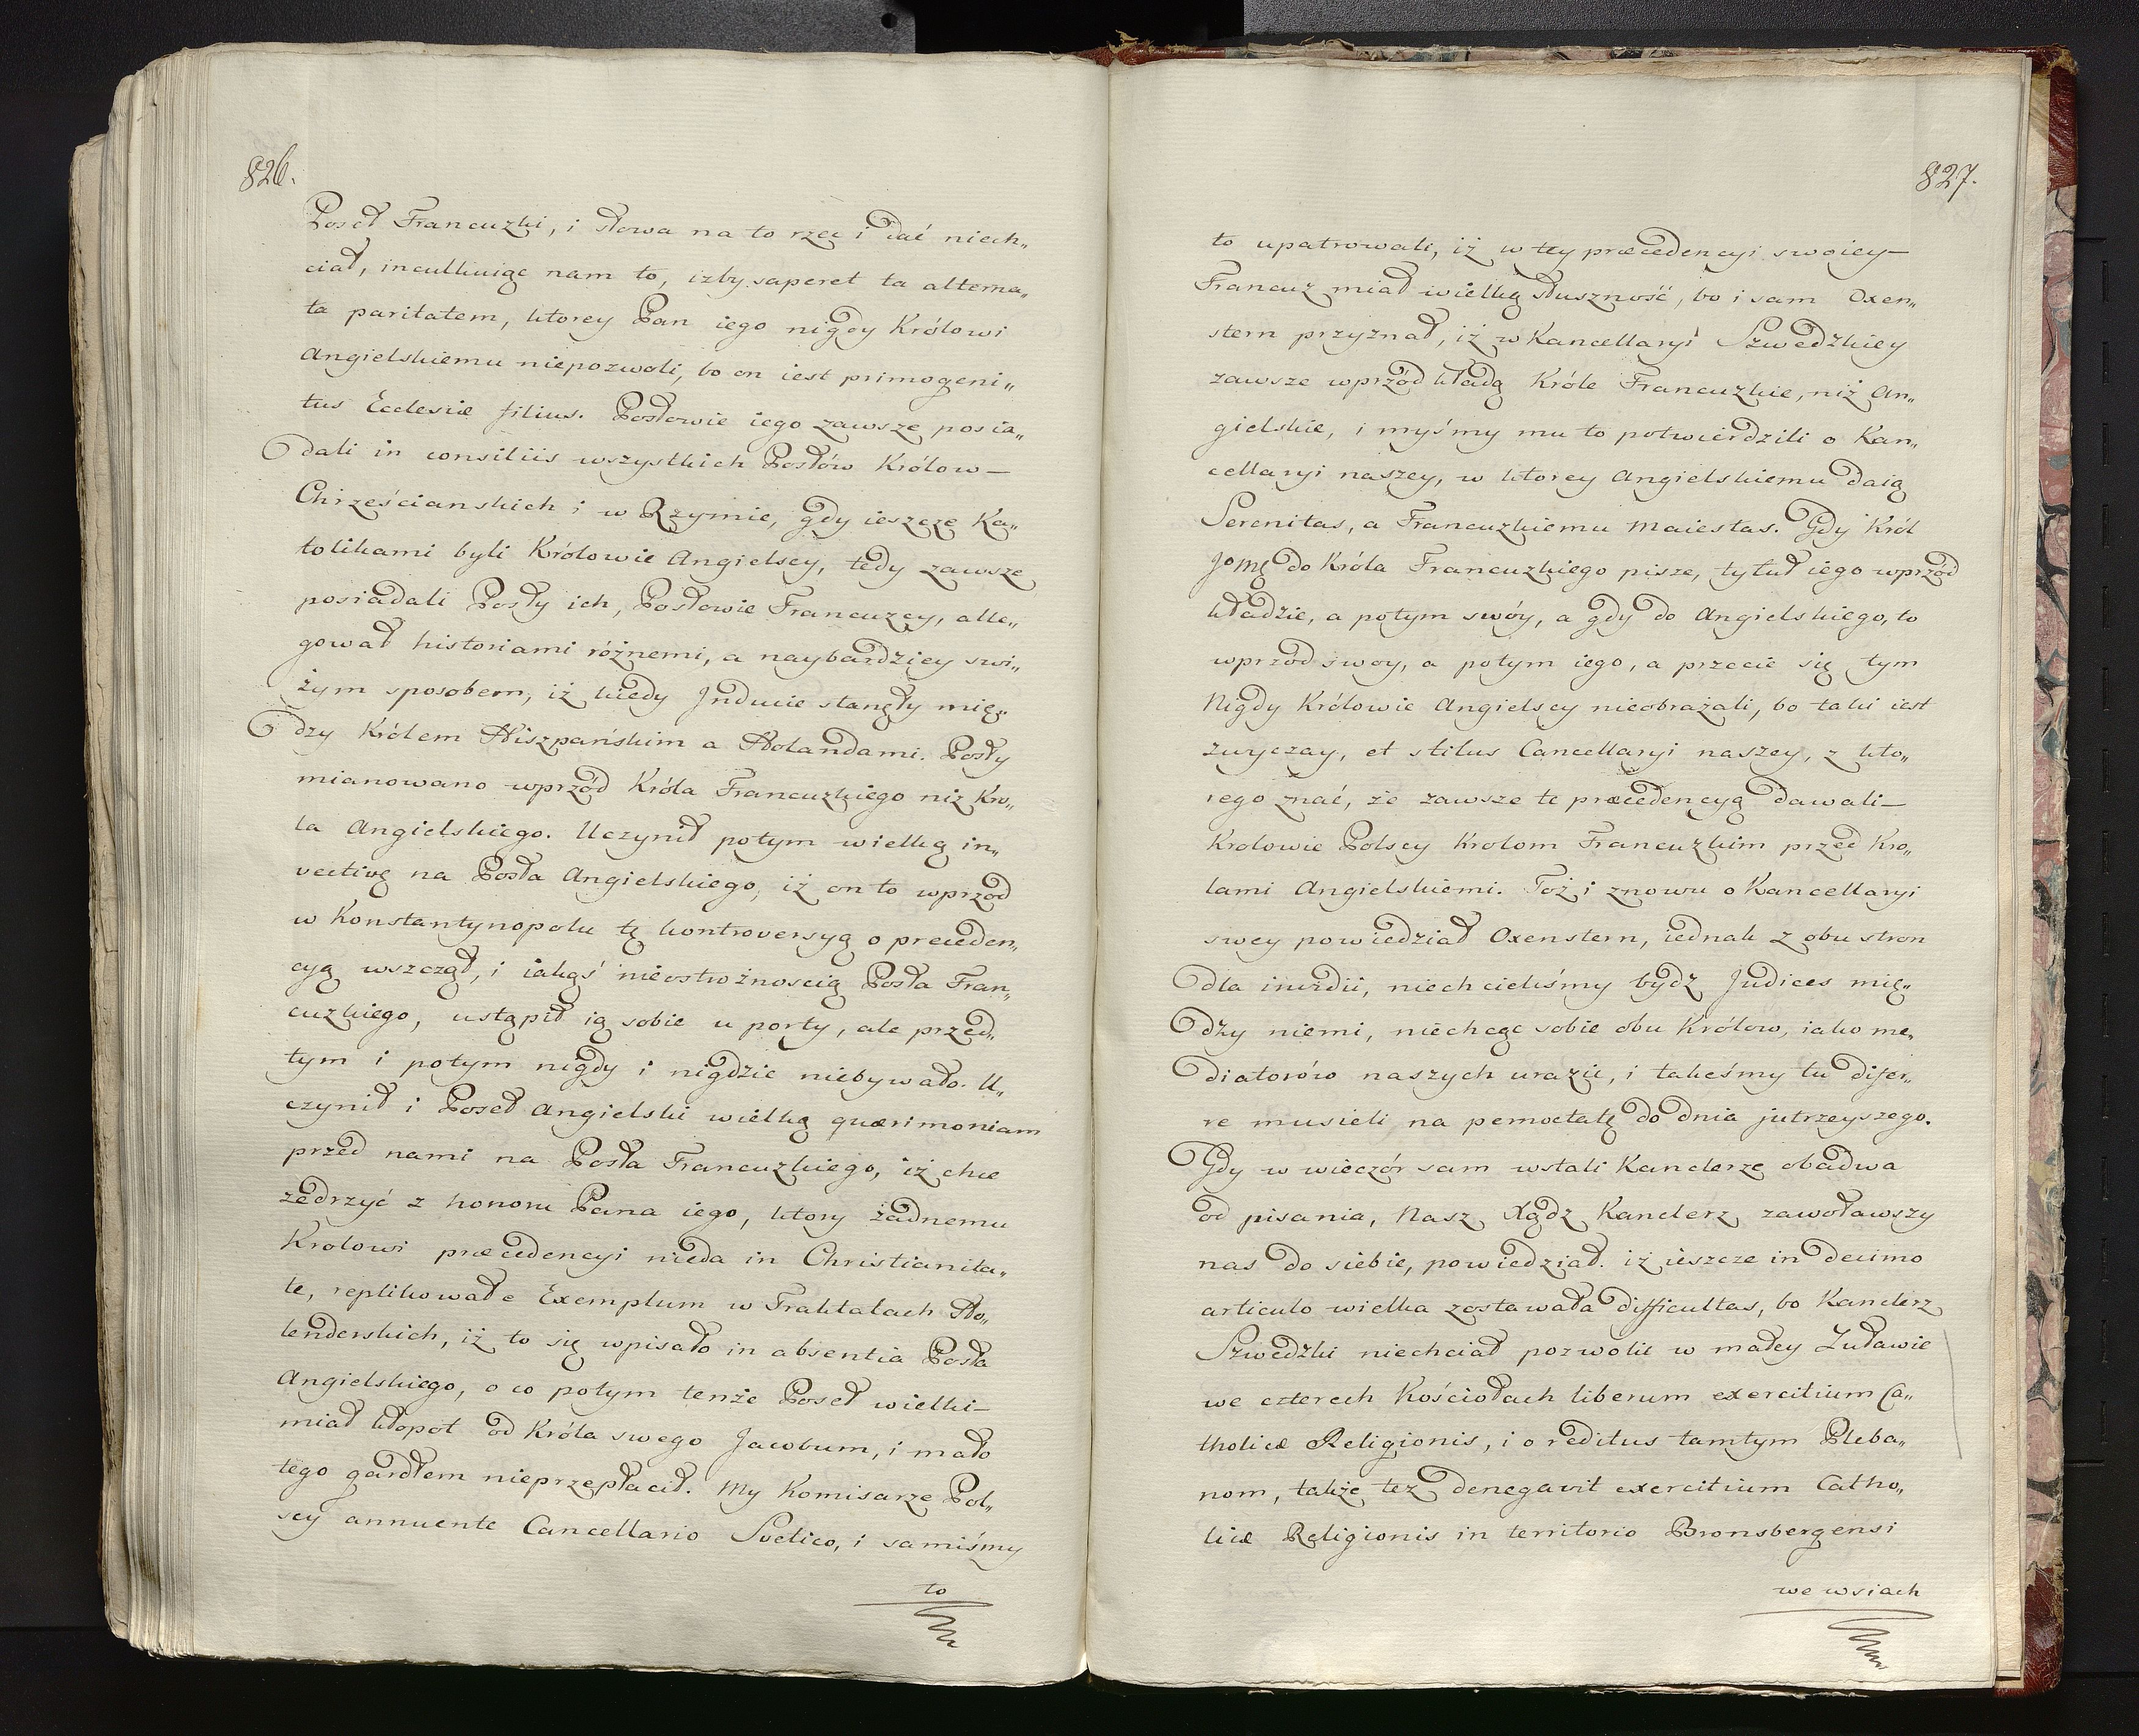 826.
Poseł Francuzki, i słowa na to rzec i dać niech„
ciał, inculkuiąc nam to, izby saperet ta alterna„
ta paritatem, ktorey Pan iego nigdy Królowi
Angielskiemu niepozwoli, bo on iest primogeni„
tus Ecclesiæ filius. Posłowie iego zawsze posia„
dali in consiliis wszystkich Posłów Królow—
Chrześcianskich i w Rzymie, gdy ieszcze Ka„
tolikami byli Królowie Angielscy, tedy zawsze
posiadali Posły ich, Posłowie Francuzcy, alle„
gował historiami różnemi, a naybardziey swi„
żym sposobem, iż kiedy Jnducie stanęły mię„
dzy Królem Hiszpańskim a Holandami. Posły
mianowano wprzód Króla Francuzkiego niz Kró„
la Angielskiego. Uczynił potym wielką in„
vectivę na Posła Angielskiego, iż on to wprzód
w Konstantynopolu tę kontroversyą o preceden„
cyą wszczął, i iakąś nieostrożnoscią Posła Fran„
cuzkiego, ustąpił ią sobie u porty, ale przed„
tym i potym nigdy i nigdzie niebywało. U„
czynił i Poseł Angielski wielką quærimoniam
przed nami na Posła Francuzkiego, iż chce
zedrzyć z honoru Pana iego, ktory żadnemu
Krolowi præcedencyi nieda in Christianita„
te, replikował e Exemplum w Traktatach Ho„
lenderskich, iż to się wpisało in absentia Posła
Angielskiego, o co potym tenże Poseł wielki—
miał kłopot od Króla swego Jacobum, i mało
tego gardłem nieprzepłacił. My Komisarze Pol„
scy annuente Cancellario Svetico, i samiśmy
to
827.
to upatrowali, iż w tey præcedencyi swoiey—
Francuz miał wielką słuszność, bo i sam Oxen„
stern przyznał, iż w Kancellaryi Szwedzkiey
zawsze wprzód kładą Króle Francuzkie, niż An„
gielskie, i myśmy mu to potwierdzili o Kan„
cellaryi naszey, w ktorey Angielskiemu daią
Serenitas, a Francuzkiemu Maiestas. Gdy Król
Jomę do Króla Francuzkiego pisze, tytuł iego wprzód
kładzie, a potym swóy, a gdy do Angielskiego, to
wprzod swoy, a potym iego, a przecie się tym
Nigdy Królowie Angielscy nieobrażali, bo taki iest
zwyczay, et stilus Cancellaryi naszey, z kto„
rego znać, że zawsze te præcedencyą dawali—
Krolowie Polscy Krolom Francuzkim przed Kro„
lami Angielskiemi. Toż i znowu o Kancellaryi
swey powiedział Oxenstern, iednak z obu stron
dla invidii, niechcieliśmy bydz Judices mię„
dzy niemi, niechcąc sobie obu Królow, iako me„
diatorów naszych urazic, i takeśmy tu difer„
re musieli na pernoctatę do dnia jutrzeyszego.
Gdy w wieczór sam wstali Kanclerze obadwa
od pisania, Nasz Xądz Kanclerz zawoławszy
nas do siebie, powiedział. iż ieszcze in decimo
articulo wielka zostawała difficultas, bo Kanclerz
Szwedzki niechciał pozwolic w małey Zuławie
we czterech Kościołach liberum exercitium Ca„
tholicæ Religionis, i o reditus tamtym Pleba„
nom, także też denegavit exercitium Catho„
licæ Religionis in territorio Bronsbergensi
we wsiach